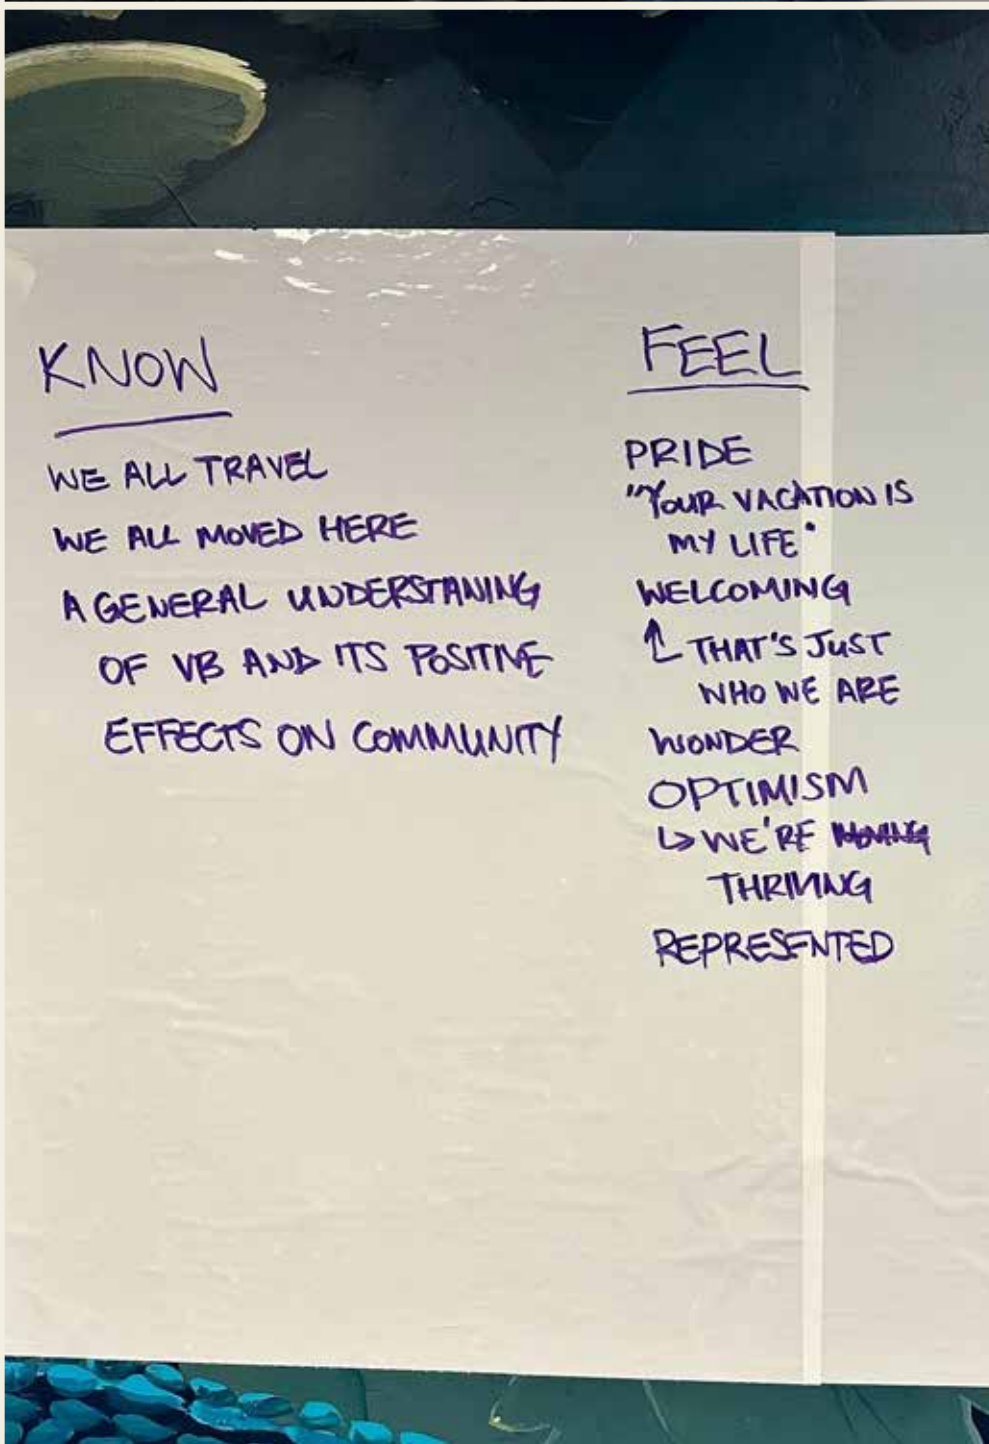 KNOW
WE ALL TRAVEL
WE ALL MOVED HERE
A GENERAL UNDERSTANING
OF VB AND ITS POSITIVE
EFFECTS ON COMMUNITY
FEEL
PRIDE
"YOUR VACATION IS
MY LIFE"
WELCOMING
↑ THAT'S JUST
WHO WE ARE
WONDER
OPTIMISM
↳ WE'RE
THRIVING
REPRESENTED